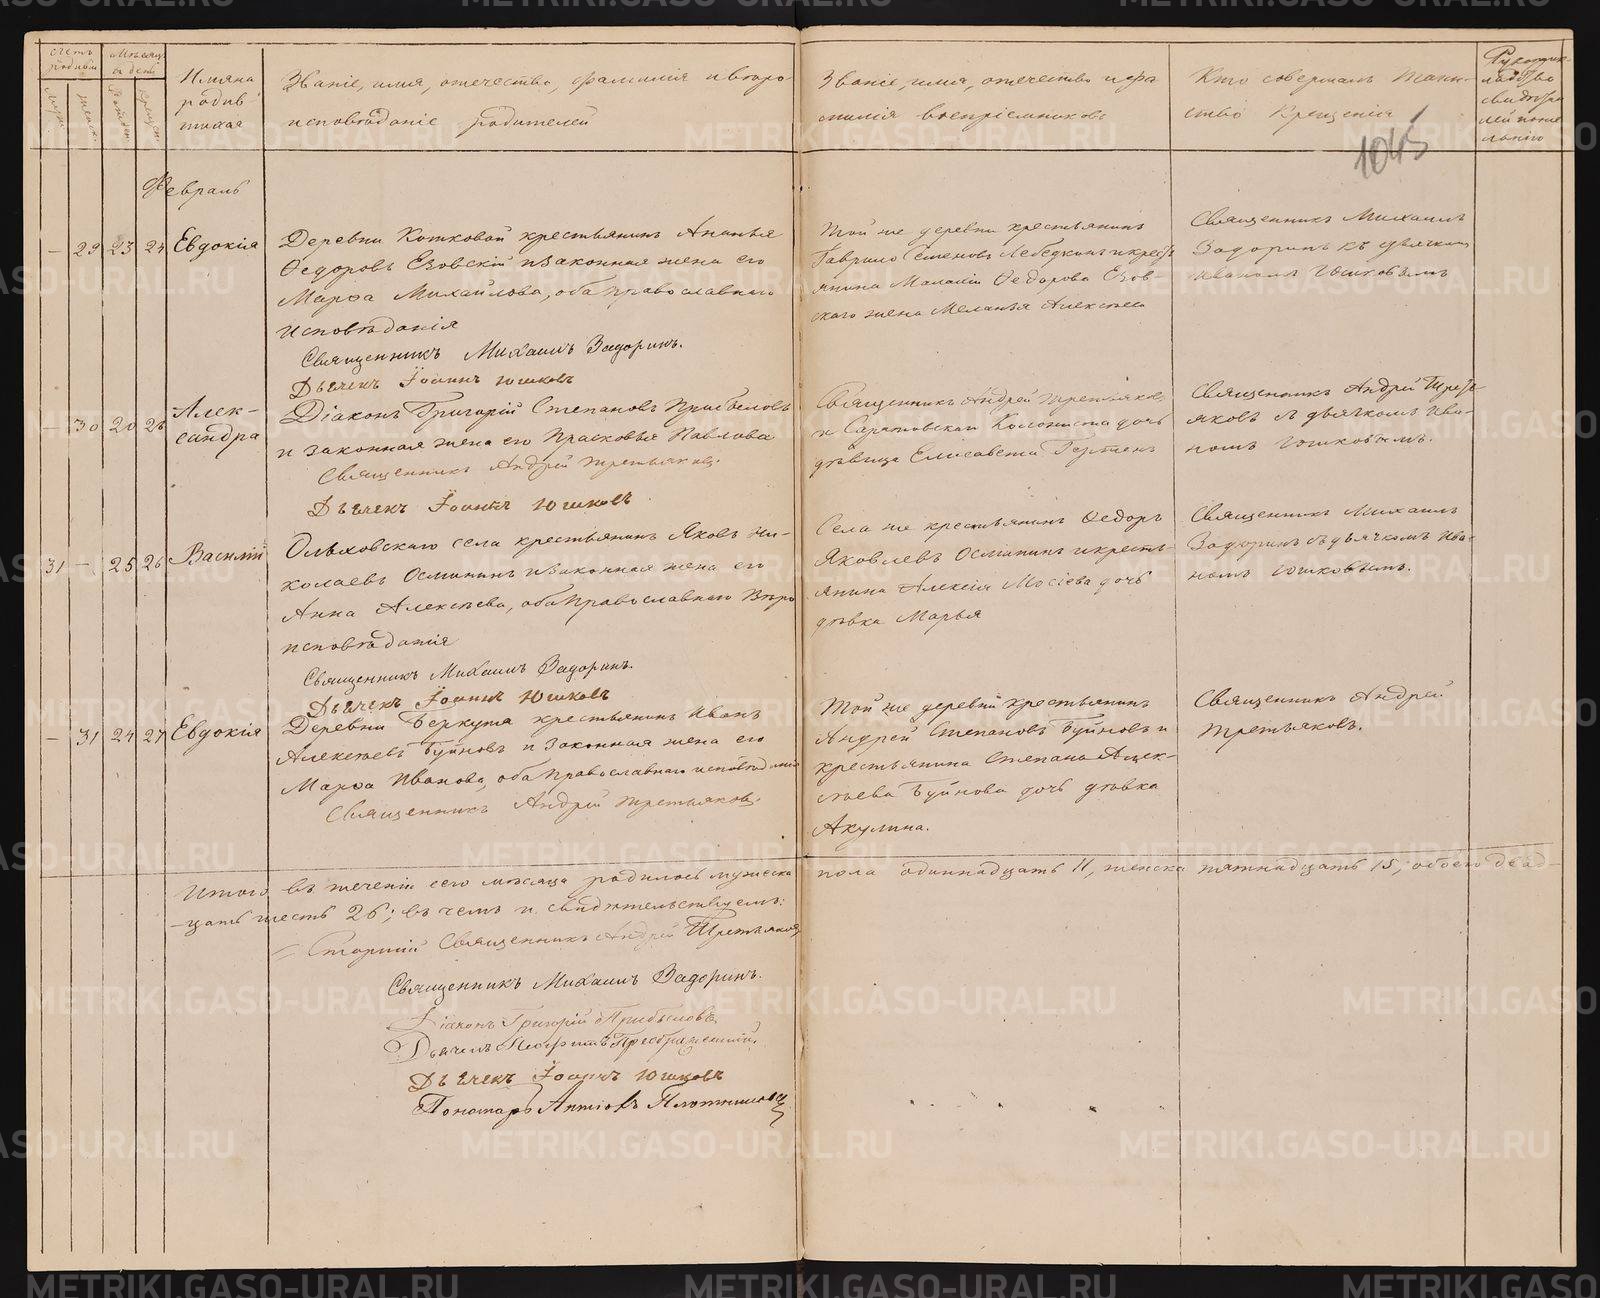 Счетъ родивш
Мѣсяцъ и день
Имяна родив-шихся
Званіе, имя, отечество, фамилія и вѣро-
исповѣданіе родителей
Званіе, имя, отечество и фа-
милія воспріемниковъ
Кто совершалъ таин-
ство Крещенія
1045
Февраль
— 29 23 24 Евдокія
Деревни Котковой крестьянинъ Ананья
Ѳедоровъ Езовскій и законная жена его
Марѳа Михайлова, оба православнаго
исповѣданія
Священникъ Михаилъ Задоринъ.
Дьячекъ Іоаннъ Юшковъ
Той же деревни крестьянинъ
Гаврило Семеновъ Лебедкинъ и крест
янина Малахіи Ѳедорова Езов
скаго жена Меланья Алексѣева
Священникъ Михаилъ
Задоринъ съ дьячкомъ
Иваномъ Юшковымъ
— 30 20 26 Алек-
сандра
Діаконъ Григорій Степановъ Прибыловъ
и законная жена его Прасковья Павлова
Священникъ Андрей Третьяковъ.
Дьячекъ Іоаннъ Юшковъ
Священникъ Андрей Третьяковъ
и Саратовская Колониста дочь
дѣвица Елисавета
Священникъ Андрей Треть-
яковъ съ дьячкомъ Ива-
номъ Юшковымъ.
31 — 25 26 Василій
Ольховскаго села крестьянинъ Яковъ Ни-
колаевъ Осминин и законная жена его
Анна Алексѣева, оба православнаго вѣро
исповѣданія
Священникъ Михаилъ Задоринъ.
Дьячекъ Іоаннъ Юшковъ
Села же крестьянинъ Ѳедоръ
Яковлевъ Осминин и кресть-
янина Алексія Мосіева дочь
дѣвка Марья
Священникъ Михаилъ
Задоринъ съ дьячкомъ Ива-
номъ Юшковымъ.
— 31 24 27 Евдокія
Деревни Беркута крестьянинъ Иванъ
Алексѣевъ Буйновъ и законная жена его
Марѳа Иванова, оба православнаго исповѣданія
Священникъ Андрей Третьяковъ.
Той же деревни крестьянинъ
Андрей Степановъ Буйновъ и
крестьянина Степана Алек-
сѣева Буйнова дочь дѣвка
Акулина.
Священникъ Андрей
Третьяковъ.
Итого въ теченіи сего мѣсяца родилось мужеска пола одиннадцать 11, женска пятнадцать 15, обоего двад-
-цать шесть 26; въ чемъ и свидѣтельствуемъ:
Старшій Священникъ Андрей Третьяковъ
Священникъ Михаилъ Задоринъ.
Діаконъ Григорій Прибыловъ
Дьячекъ Преображенскій.
Дьячекъ Іоаннъ Юшковъ
Пономарь Плотниковъ
METRIKI.GASO-URAL.RU